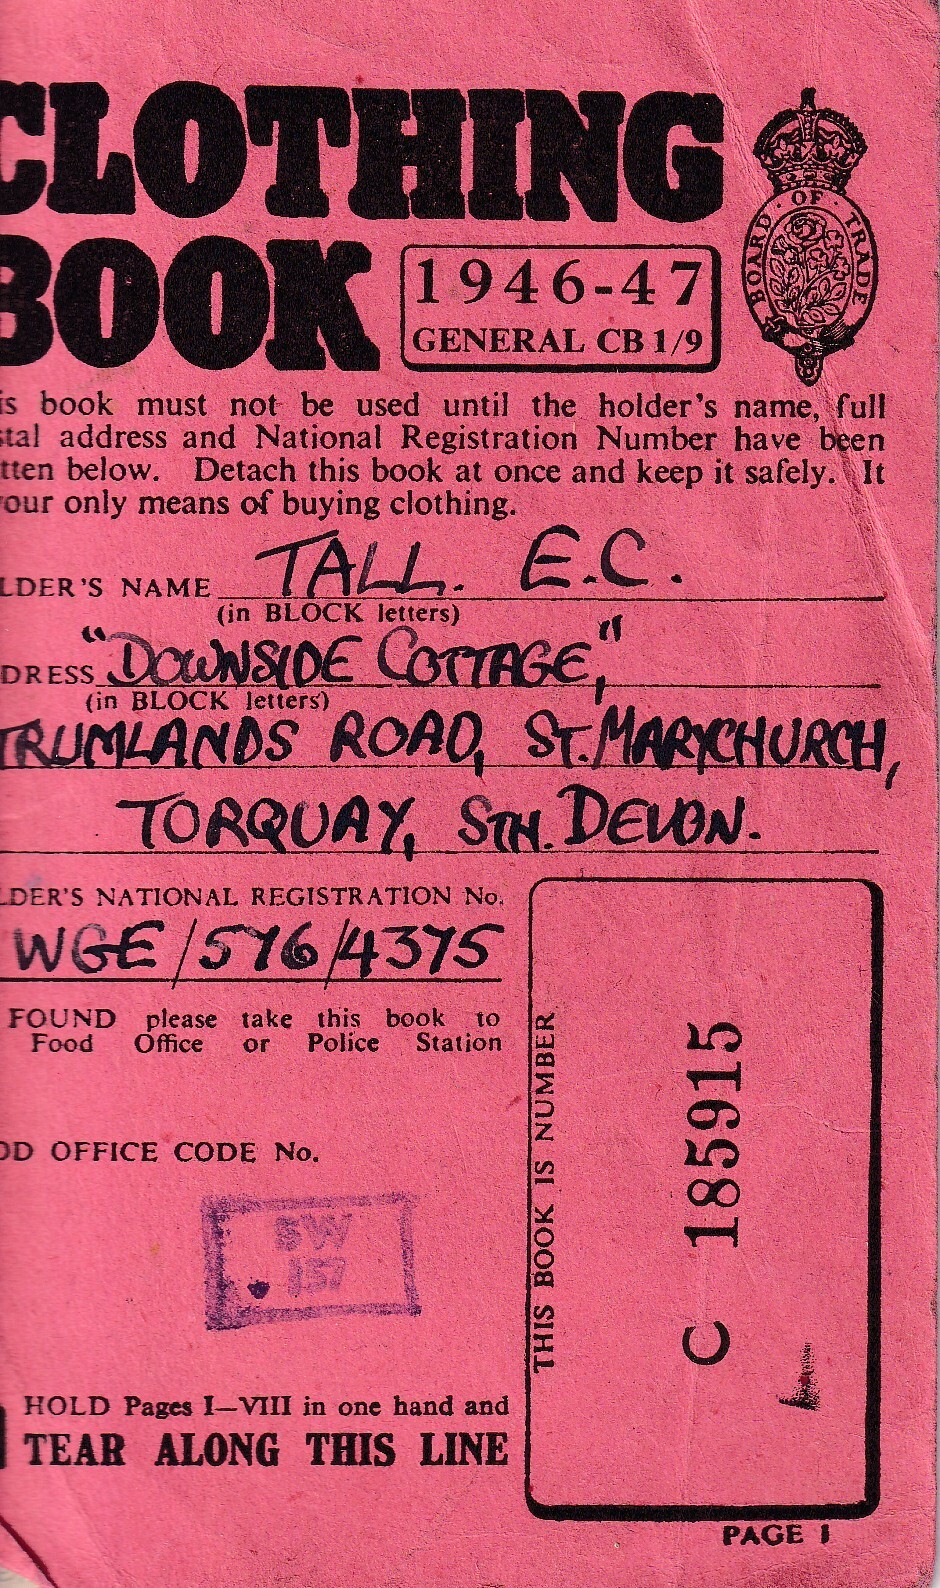 CLOTHING
BOOK
1946-47
GENERAL CB 1/9
BOARD · OF · TRADE
is book must not be used until the holder's name, full
stal address and National Registration Number have been
tten below. Detach this book at once and keep it safely. It
our only means of buying clothing.
LDER'S NAME TALL. E.C.
(in BLOCK letters)
DRESS "DOWNSIDE COTTAGE,"
(in BLOCK letters)
TRUMLANDS ROAD, ST. MARYCHURCH,
TORQUAY, STH. DEVON.
LDER'S NATIONAL REGISTRATION No.
WGE/576/4375
FOUND please take this book to
Food Office or Police Station
OD OFFICE CODE No.
SW
157
HOLD Pages I—VIII in one hand and
TEAR ALONG THIS LINE
THIS BOOK IS NUMBER
C 185915
PAGE I